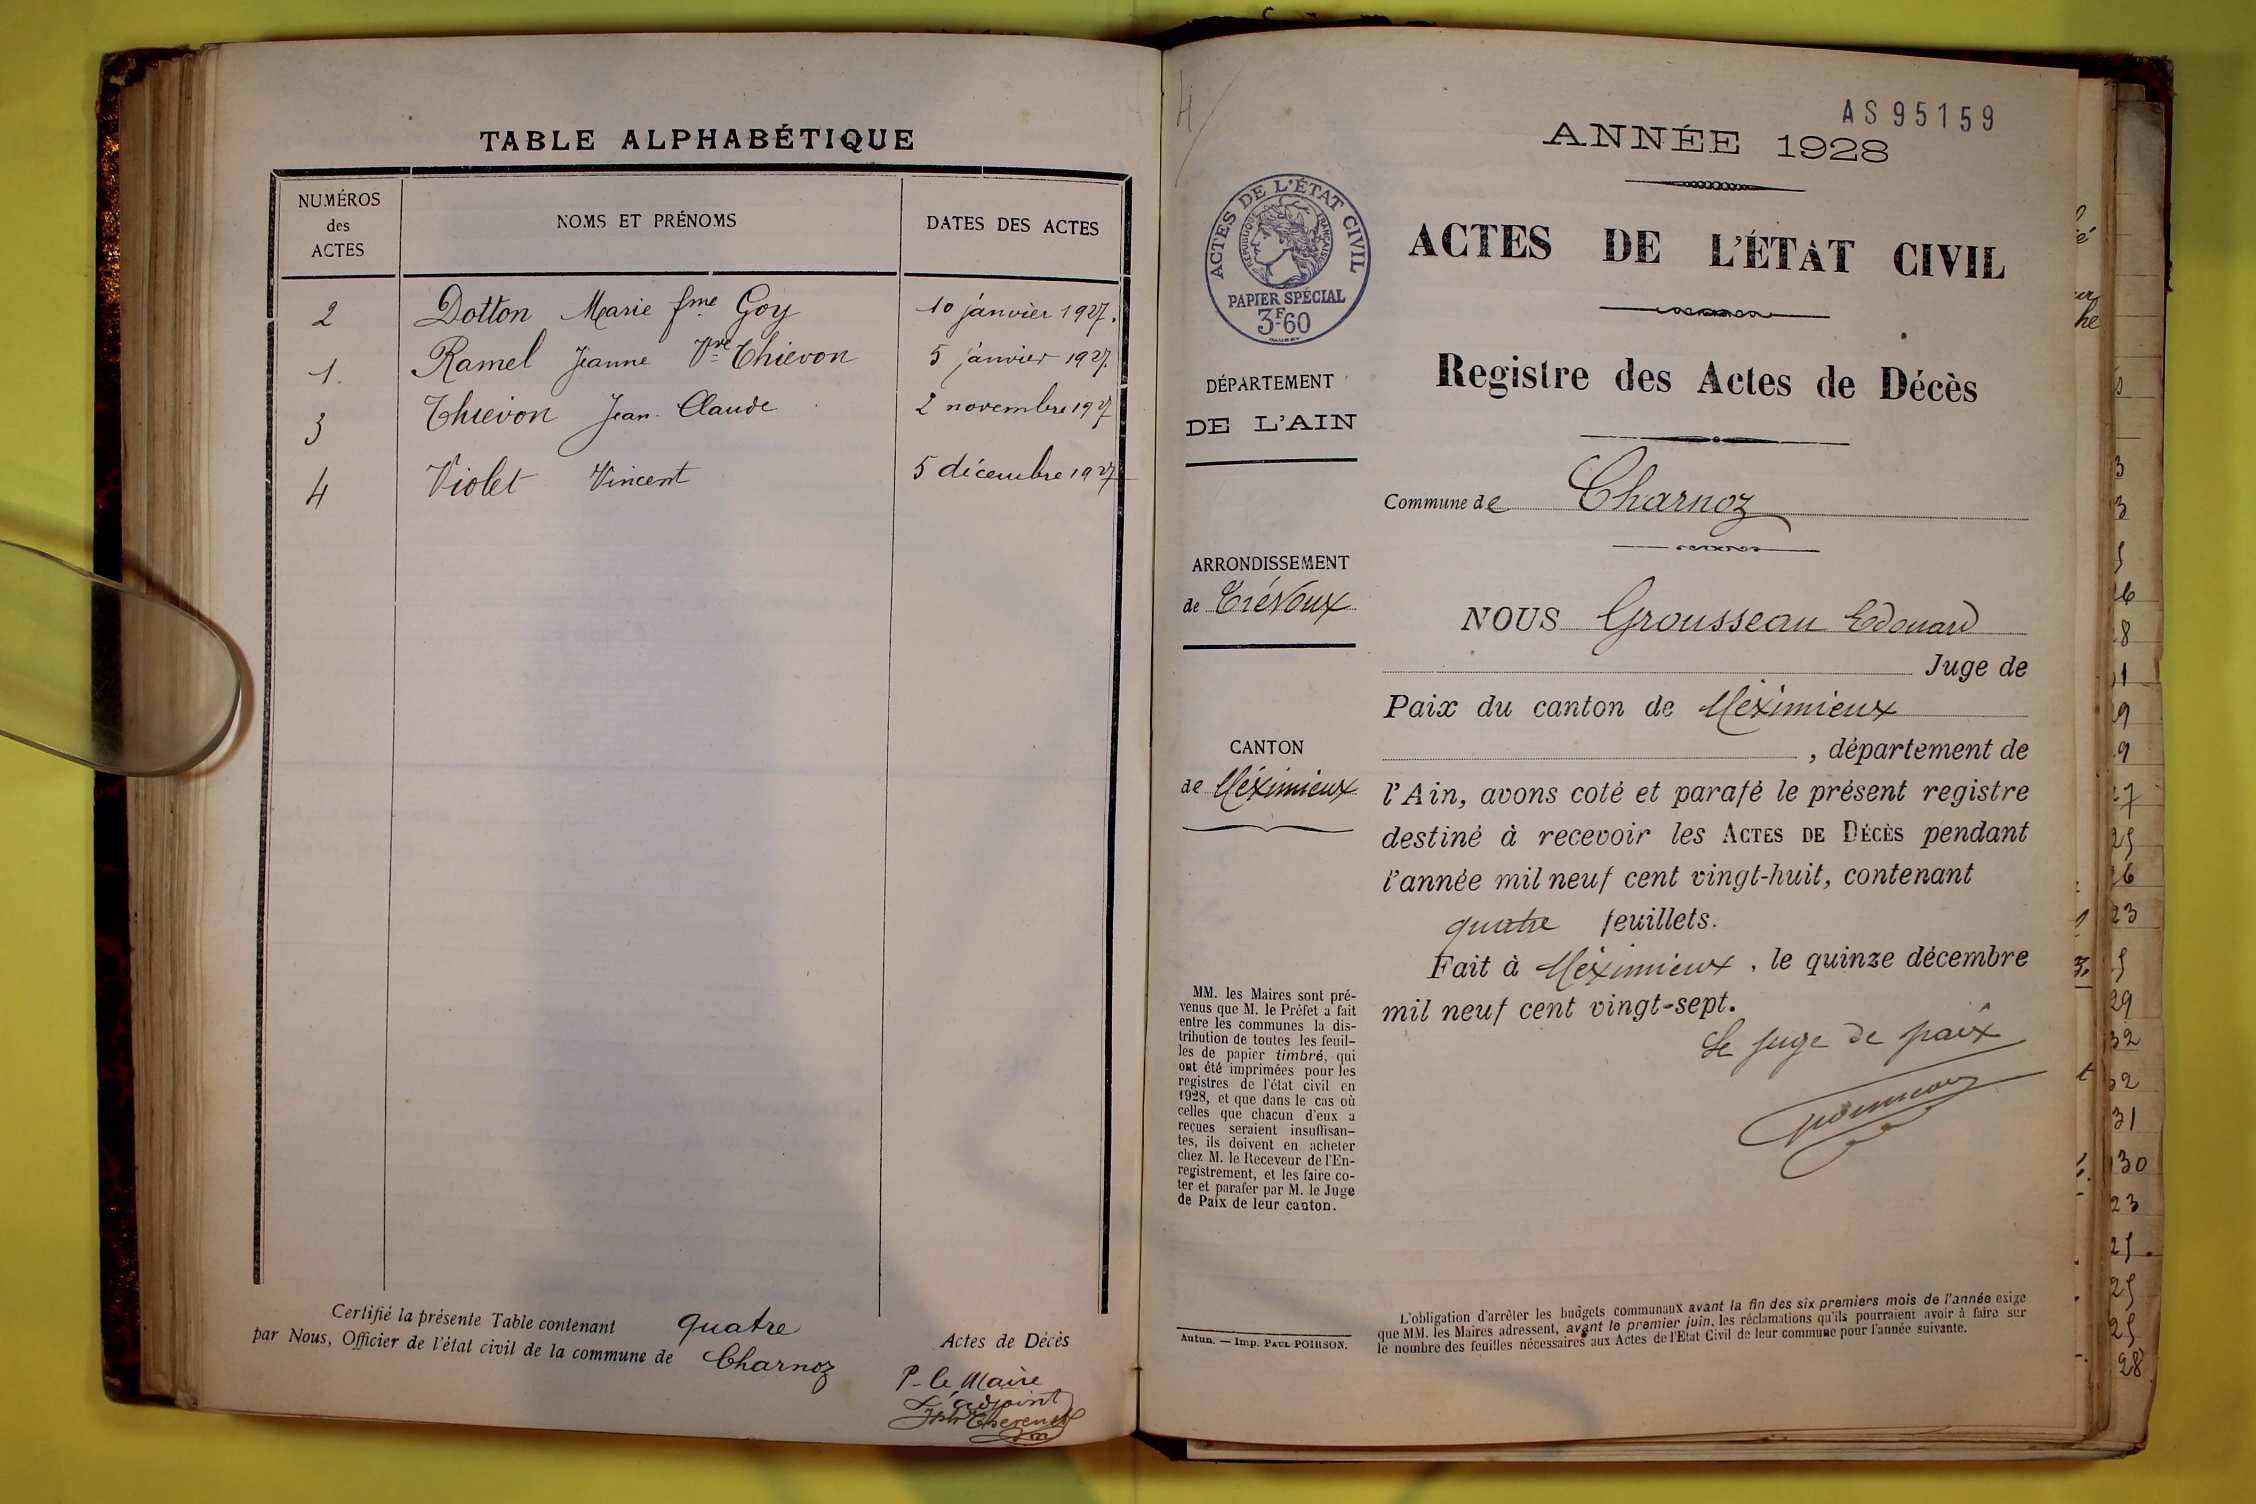 TABLE ALPHABÉTIQUE
NUMÉROS
des
ACTES
NOMS ET PRÉNOMS
DATES DES ACTES
2 Dotton Marie fme Goy 10 janvier 1927.
1. Ramel Jeanne Vve Thievon 5 janvier 1927.
3 Thievon Jean-Claude 2 novembre 1927
4 Violet Vincent 5 décembre 1927
Certifié la présente Table contenant quatre Actes de Décès
par Nous, Officier de l'état civil de la commune de Charnoz
P. le Maire
L'adjoint
AS95159
ANNÉE 1928
ACTES DE L'ÉTAT CIVIL
RÉPUBLIQUE FRANÇAISE
PAPIER SPÉCIAL
3F60
ACTES DE L'ÉTAT CIVIL
Registre des Actes de Décès
DÉPARTEMENT
DE L'AIN
Commune de Charnoz
ARRONDISSEMENT
de Trévoux
NOUS Grousseau Edouard
Juge de
Paix du canton de Méximieux
, département de
CANTON
de Méximieux
l'Ain, avons coté et parafé le présent registre
destiné à recevoir les ACTES DE DÉCÈS pendant
l'année mil neuf cent vingt-huit, contenant
quatre feuillets.
Fait à Méximieux, le quinze décembre
mil neuf cent vingt-sept.
Le juge de paix
MM. les Maires sont pré-
venus que M. le Préfet a fait
entre les communes la dis-
tribution de toutes les feuil-
les de papier timbré, qui
ont été imprimées pour les
registres de l'état civil en
1928, et que dans le cas où
celles que chacun d'eux a
reçues seraient insuffisan-
tes, ils doivent en acheter
chez M. le Receveur de l'En-
registrement, et les faire co-
ter et parafer par M. le Juge
de Paix de leur canton.
Autun. — Imp. PAUL POIRSON.
L'obligation d'arrêter les budgets communaux avant la fin des six premiers mois de l'année exige
que MM. les Maires adressent, avant le premier juin, les réclamations qu'ils pourraient avoir à faire sur
le nombre des feuilles nécessaires aux Actes de l'Etat Civil de leur commune pour l'année suivante.